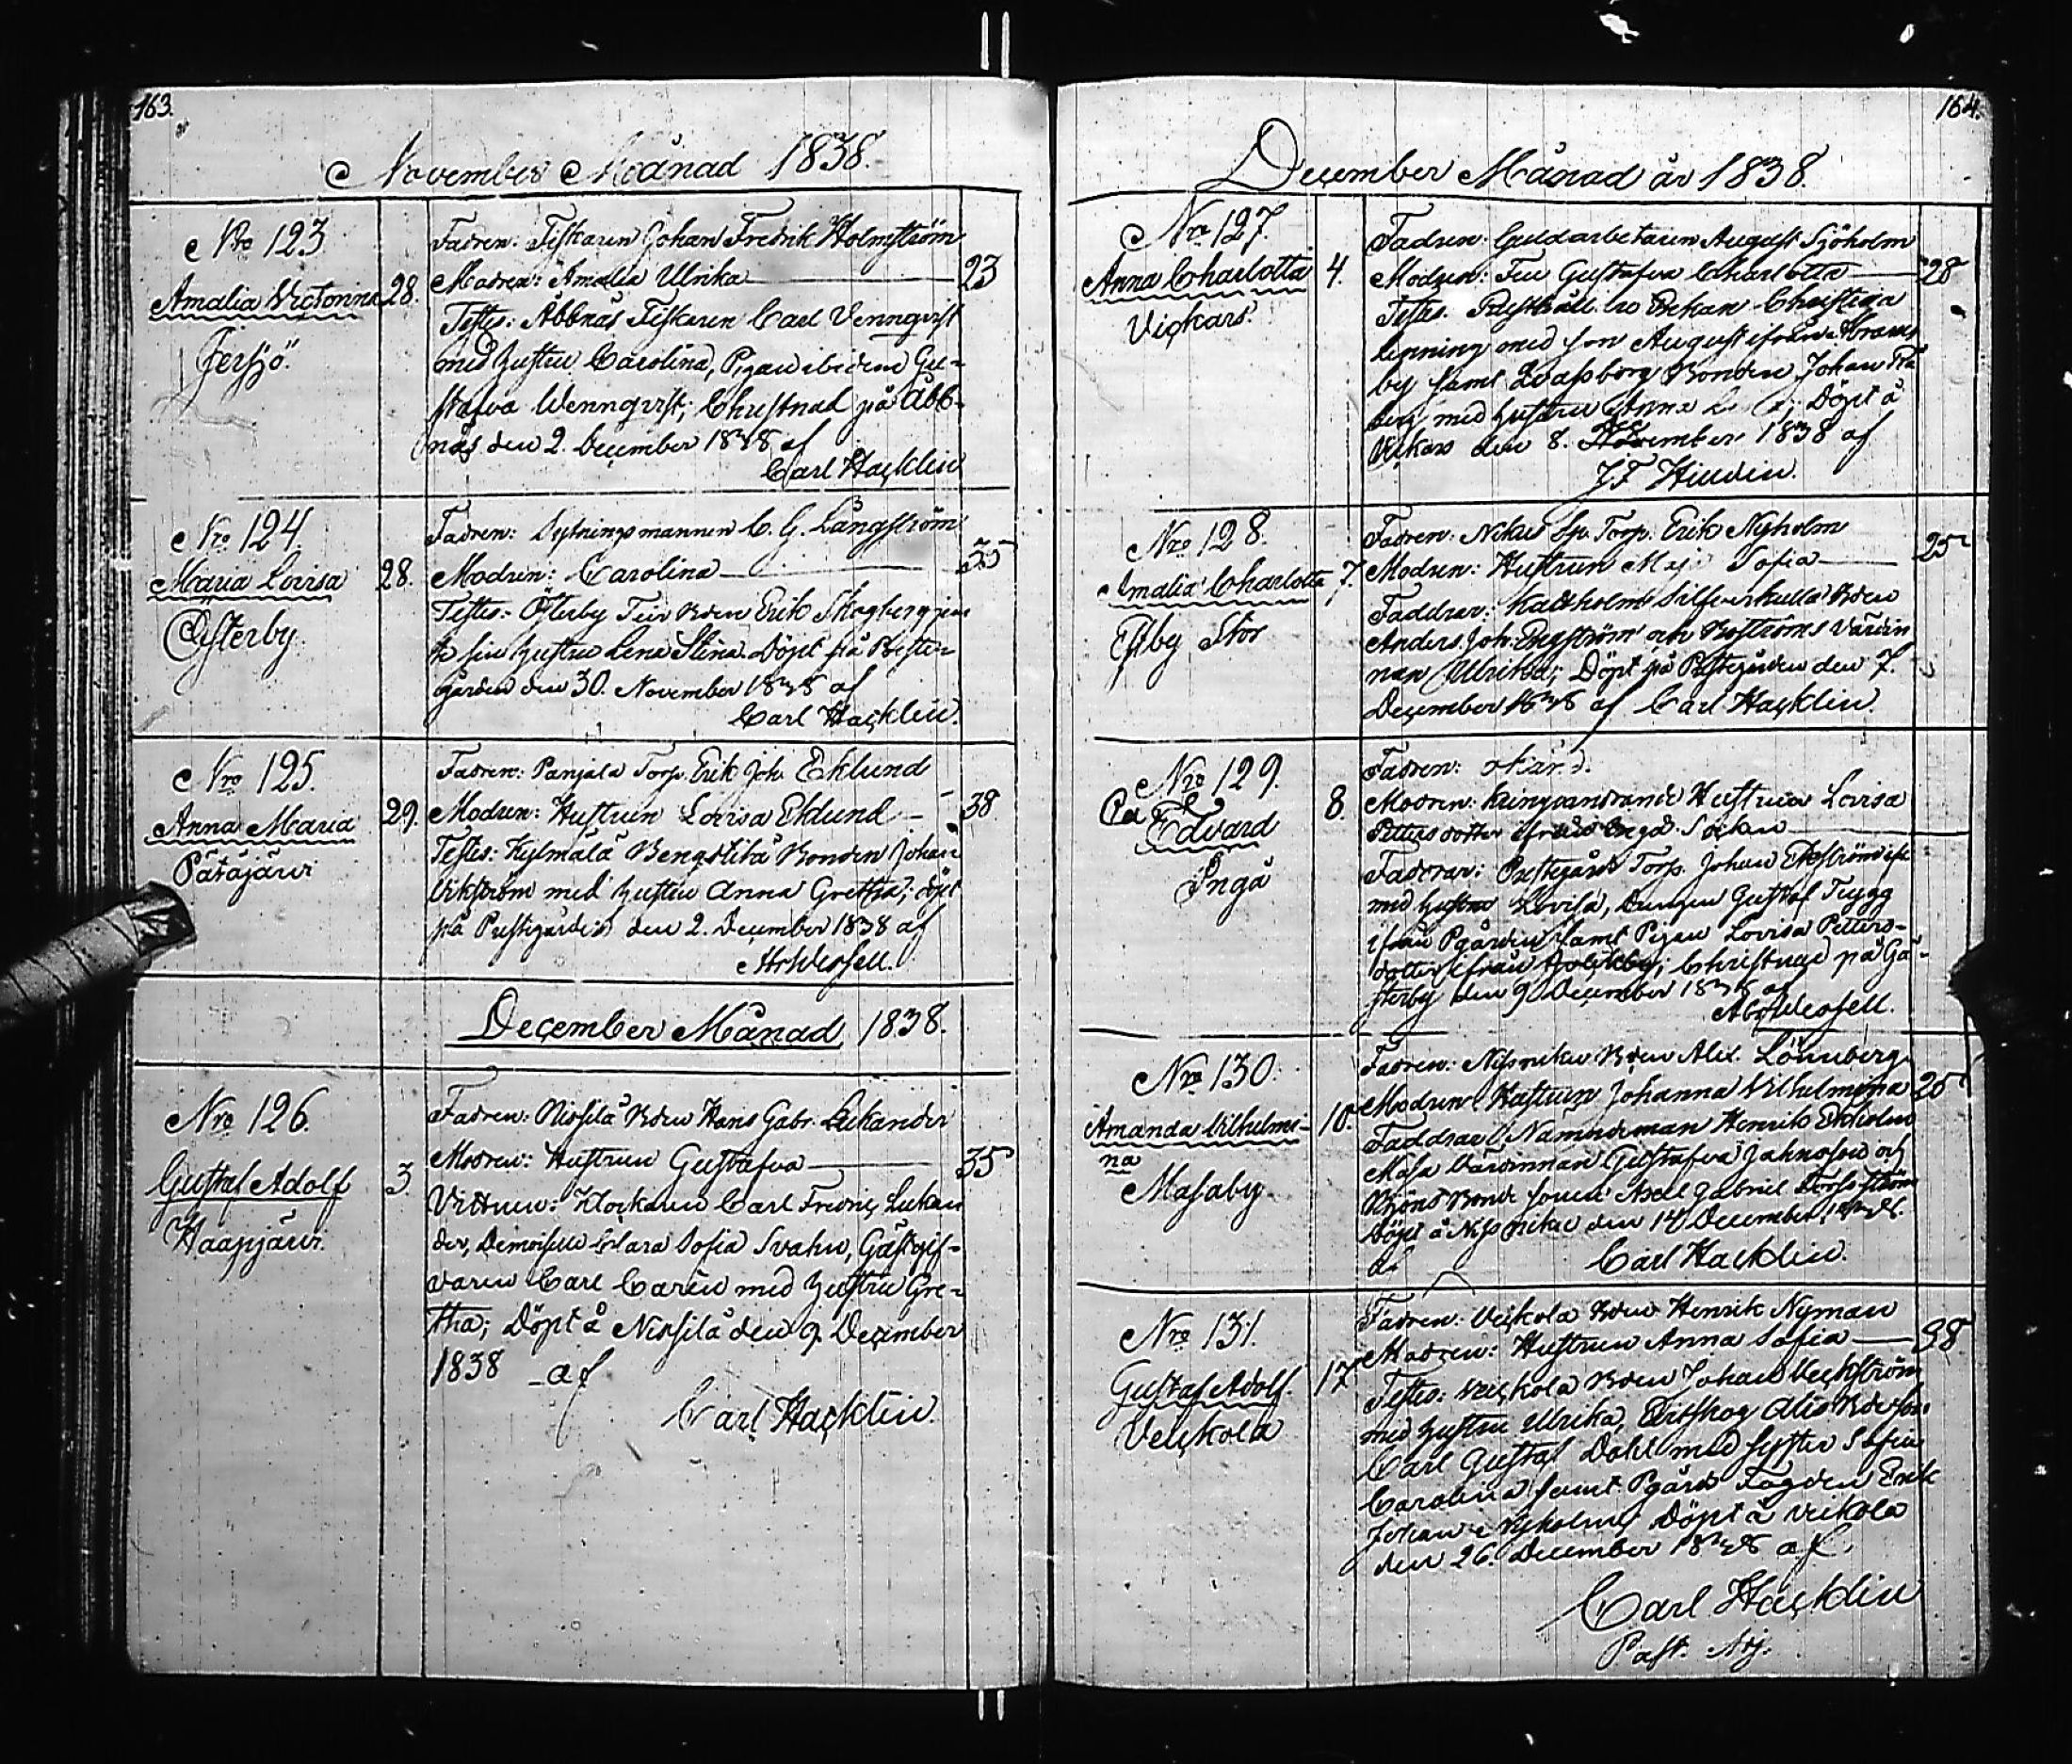 163.
November Månad 1838.
Nro 123
Amalia Victorina
Jersjö.
28.
Fadren: Fiskaren Johan Fredrik Holmström
Modren: Amalia Ulrika
23
Testes: Åbbnäs Fiskaren Carl Vennqvist
med hustru Carolina, Pigan ibidem Gu-
stafva Wennqvist; Christnad på Åbb-
näs den 2. December 1838 af
Carl Hacklin
Nro 124
Maria Lovisa
Österby
28.
Fadren: Sytningsmannen C. G. Långström
Modren: Carolina
35
Testes: Österby Bden Erik Skogberg jem
te sin hustru Lena Stina. Döpt på Preste-
gården den 30. November 1838 af
Carl Hacklin.
Nro 125.
Anna Maria
Pätäjärvi
29.
Fadren: Panjala Torp. Erik Joh. Eklund
Modren: Hustrun Lovisa Eklund
38
Testes: Kylmälä Bengstilä Bonden Johan
Vikström med hustru Anna Gretha; döpt
på Prestegården den 2. December 1838 af
Wessell.
December Månad 1838.
Nro 126.
Gustaf Adolf
Haapjärvi.
3.
Fadren: Nissilä Bden Hans Gabr. Lekander
Modren: Hustrun Gustafva
35
Vittnen: Klockaren Carl Fredric Lekan
der, Demoiselle Clara Sofia Svahn, Gästgif-
varen Carl Carén med hustru Gre-
tha; Döpt å Nissilä den 9. December
1838 af
Carl Hacklin.
164.
December Månad år 1838.
Nro 127.
Anna Charlotta
Vickars.
4.
Fadren: Guldarbetaren August Sjöholm
Modren: Fru Gustafva Charlotta
28
Testes. Enkan Christina
med son August ifrån
by samt Bonden Johan
berg med hustru Anna Döpt å
Vickars den 8. December 1838 af
J F
Nro 128.
Amalia Charlotta
Esby Stor
7.
Fadren: Torp. Erik Nyholm
Modren: Hustrun Maja Sofia
25
Faddrar: Bden
Anders Joh. Engström och Boströms Värdin
nan Ulrika; Döpt på Prestegården den 7.
December 1838 af Carl Hacklin.
Nro 129.
Edvard
Ingå
8.
Fadren: okänd.
Modren: kringvandrande Hustrun Lovisa
Pettersdotter ifrån Ingå Socken
Faddrar: Prestegårds Torp. Johan Ekström
med hustru Lovisa, Drengen Gustaf Trygg
ifrån Pgården samt Pigan Lovisa Petters-
dotter ifrån Christnad på Gå-
sterby den 9 December 1838 af
Wessell.
Nro 130.
Amanda Vilhelmi-
na
Masaby
10.
Fadren: Bden Alex. Lönnberg
Modren: Hustrun Johanna Vilhelmina
25
Faddrar: Nämndeman Henrik Ekholm
Masa Värdinnan Gustafva Jahnsson och
Bonde sonen Axel Gabriel
Döpt å den 14 December 1838.
af
Carl Hacklin.
Nro 131.
Gustaf Adolf.
Veickola
17.
Fadren: Veickola Bden Henrik Nyman
Modren: Hustrun Anna Sofia
38
Testes: Veickola Bden Johan Veckström
med hustru Ulrika, Evitskog
Carl Gustaf Dahl med syster Sofia
Carolina samt Pgårds Fogden Erik
Johan Nyholm; Döpt å Veikola
den 26. December 1838 af
Carl Hacklin
Past. Adj.